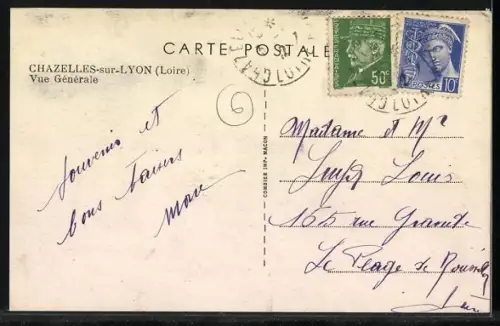 CARTE POSTALE
CHAZELLES-sur-LYON (Loire)
Vue Générale
50c
POSTES
10c
6
Souvenir et
bons baisers
COMBIER IMP. MACON
Madame et Mr
Louis
165 rue Grande
Le Péage de Roussillon
Isère